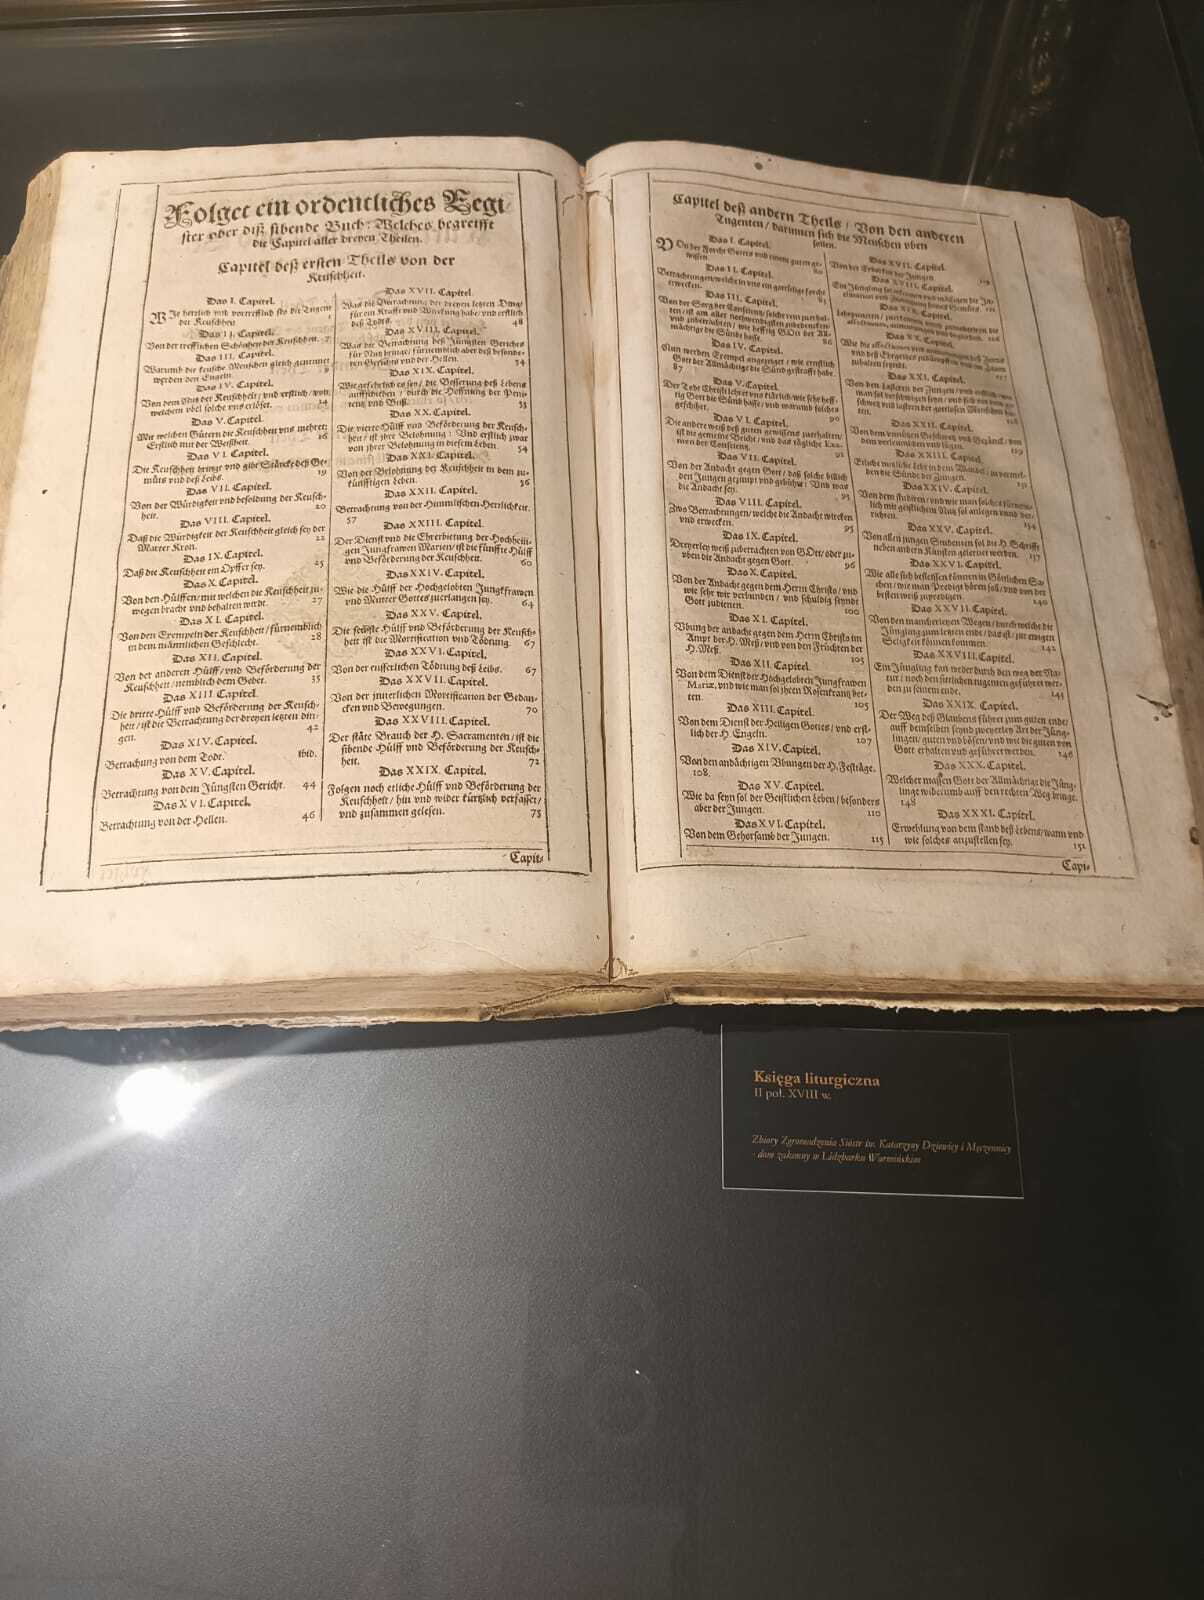 Folget ein ordentliches Regi-
ster vber diß sibende Buch: Welches begreifft
die Capitel aller dreyen Theilen.
Capitel deß ersten Theils von der
Keuschheit.
Das I. Capitel.
Wie herrlich vnd vortrefflich sey die Tugent
der Keuschheit. 1
Das II. Capitel.
Von der trefflichen Schönheit der Keuschheit. 7
Das III. Capitel.
Warumb die keusche Menschen gleich genennet
werden den Engeln.
Das IV. Capitel.
Von dem Nutz der Keuschheit / vnd erstlich / von
welchem vbel solche vns erlöset. 14
Das V. Capitel.
Mit welchen Gütern die Keuschheit vns mehret:
Erstlich mit der Weißheit. 16
Das VI. Capitel.
Die Keuschheit bringt vnd gibt Stärcke deß Ge-
müts vnd deß Leibs. 19
Das VII. Capitel.
Von der Würdigkeit vnd besoldung der Keusch-
heit. 20
Das VIII. Capitel.
Daß die Würdigkeit der Keuschheit gleich sey der
Marter Kron. 22
Das IX. Capitel.
Daß die Keuschheit ein Opffer sey. 25
Das X. Capitel.
Von den Hülffen / mit welchen die Keuschheit zu-
wegen bracht vnd behalten wirdt. 27
Das XI. Capitel.
Von den Exempeln der Keuschheit / fürnemblich
in dem männlichen Geschlecht. 28
Das XII. Capitel.
Von der anderen Hülff / vnd Beförderung der
Keuschheit / nemblich dem Gebet. 35
Das XIII. Capitel.
Die dritte Hülff vnd Beförderung der Keusch-
heit / ist die Betrachtung der dreyen letzten din-
gen. 42
Das XIV. Capitel.
Betrachung von dem Todt. ibid.
Das XV. Capitel.
Betrachtung von dem Jüngsten Gericht. 44
Das XVI. Capitel.
Betrachtung von der Hellen. 46
Das XVII. Capitel.
Was die Betrachtung der dreyen letzten Ding /
für ein Krafft vnd Würckung habe / vnd erstlich
deß Todts. 48
Das XVIII. Capitel.
Was die Betrachtung deß Jüngsten Gerichts
für Nutz bringe / fürnemblich aber deß besonde-
ren Gerichts vnd der Hellen.
Das XIX. Capitel.
Wie gefehrlich es sey / die Besserung deß Lebens
auffschieben / durch die Hoffnung der Peni-
tentz vnd Buß. 53
Das XX. Capitel.
Die vierte Hülff vnd Beförderung der Keusch-
heit / ist ihre Belohnung: Vnd erstlich zwar
von ihrer Belohnung in diesem Leben. 54
Das XXI. Capitel.
Von der Belohnung der Keuschheit in dem zu-
künfftigen Leben. 56
Das XXII. Capitel.
Betrachtung von der Himmlischen Herrlichkeit.
57
Das XXIII. Capitel.
Der Dienst vnd die Ehrerbietung der Hochheili-
gen Jungfrawen Marien / ist die fünffte Hülff
vnd Beförderung der Keuschheit. 60
Das XXIV. Capitel.
Wie die Hülff der Hochgelobten Jungfrawen
vnd Mutter Gottes zuerlangen sey. 64
Das XXV. Capitel.
Die sechste Hülff vnd Beförderung der Keusch-
heit ist die Mortification vnd Tödung. 67
Das XXVI. Capitel.
Von der eusserlichen Tödung deß Leibs. 67
Das XXVII. Capitel.
Von der jnnerlichen Mortification der Gedan-
cken vnd Bewegungen. 70
Das XXVIII. Capitel.
Der stäte Brauch der H. Sacramenten / ist die
sibende Hülff vnd Beförderung der Keusch-
heit. 72
Das XXIX. Capitel.
Folgen noch etliche Hülff vnd Beförderung der
Keuschheit / hin vnd wider kürtzlich verfasset /
vnd zusammen gelesen. 73
Capit-
Capitel deß andern Theils / Von den anderen
Tugenten / darinnen sich die Menschen vben
sollen.
Das I. Capitel.
Von der Forcht Gottes vnd einem guten ge-
wissen. 80
Das II. Capitel.
Betrachtungen / welche in vns ein gottselige forcht
erwecken. 83
Das III. Capitel.
Von der Sorg der Conscientz / solche rein zuerhal-
mächtige die Sünde hasse. 86
Das IV. Capitel.
Nun werden Exempel angezeigt / wie ernstlich
Gott der Allmächtige die Sünd gestrafft habe.
87
Das V. Capitel.
Der Todt Christi lehret vns klärlich / wie sehr heff-
tig Gott die Sünd hasse / vnd warumb solches
geschehen. 90
Das VI. Capitel.
Die andere weiß deß guten gewissens zuerhalten /
ist die gemeine Beicht / vnd das tägliche Exa-
men der Conscientz. 92
Das VII. Capitel.
Von der Andacht gegen Gott / daß solche billich
den Jungen gezimpt vnd gebühre: Vnd was
die Andacht sey. 93
Das VIII. Capitel.
Zwo Betrachtungen / welche die Andacht wircken
vnd erwecken. 95
Das IX. Capitel.
Dreyerley weiß zubetrachten von GOtt / oder zu-
vben die Andacht gegen Gott. 96
Das X. Capitel.
Von der Andacht gegen dem Herrn Christo / vnd
wie sehr wir verbunden / vnd schuldig seyndt
Gott zudienen. 100
Das XI. Capitel.
Vbung der andacht gegen dem Herrn Christo im
Ampt der H. Meß / vnd von den Früchten der
H. Meß. 103
Das XII. Capitel.
Von dem Dienst der Hochgelobten Jungfrawen
Mariæ, vnd wie man sol ihren Rosenkrantz bet-
ten. 105
Das XIII. Capitel.
Von dem Dienst der Heiligen Gottes / vnd erst-
lich der H. Engeln. 107
Das XIV. Capitel.
Von den andächtigen Vbungen der H. Festtäge.
108.
Das XV. Capitel.
Wie da seyn sol der Geistlichen Leben / besonders
aber der Jungen. 110
Das XVI. Capitel.
Von dem Gehorsamb der Jungen. 115
Das XVII. Capitel.
Von der Erbarkeit der Jungen. 119
Das XVIII. Capitel.
Das XIX. Capitel.
Das XX. Capitel.
Das XXI. Capitel.
Von den Lastern der Jungen /
Das XXII. Capitel.
Von dem vnnützen Geschwetz vnd Gezänck / von
dem verleumbden vnd liegen. 129
Das XXIII. Capitel.
den die Sünde der Jungen. 131
Das XXIV. Capitel.
Von dem studiren / vnd wie man solches fürnem-
lich mit geistlichem Nutz sol anlegen vnnd ver-
richten. 134
Das XXV. Capitel.
Von allen jungen Studenten sol die H. Schrifft
neben andern Künsten gelernet werden. 137
Das XXVI. Capitel.
Wie alle sich befleissen können in Göttlichen Sa-
chen / wie man Predigt hören soll / vnd von der
besten weiß zupredigen. 140
Das XXVII. Capitel.
Von den mancherleyen Wegen / durch welche die
Jüngling zum letzten ende / das ist / zur ewigen
Seligkeit können kommen. 142
Das XXVIII. Capitel.
Ein Jüngling kan weder durch den weg der Na-
tur / noch den sittlichen tugenten geführet wer-
den zu seinem ende. 145
Das XXIX. Capitel.
Der Weg deß Glaubens führet zum guten ende /
auff demselben seynd zweyerley Art der Jüng-
lingen / guten vnd bösen / vnd wie die guten von
Gott erhalten vnd geführet werden. 146
Das XXX. Capitel.
Welcher massen Gott der Allmächtige die Jüng-
linge widerumb auff den rechten Weg bringe.
148
Das XXXI. Capitel.
Erwehlung von dem stand deß Lebens / wann vnd
wie solches anzustellen sey. 151
Capi-
Księga liturgiczna
II poł. XVIII w.
Zbiory Zgromadzenia Sióstr św. Katarzyny Dziewicy i Męczennicy
- dom zakonny w Lidzbarku Warmińskim